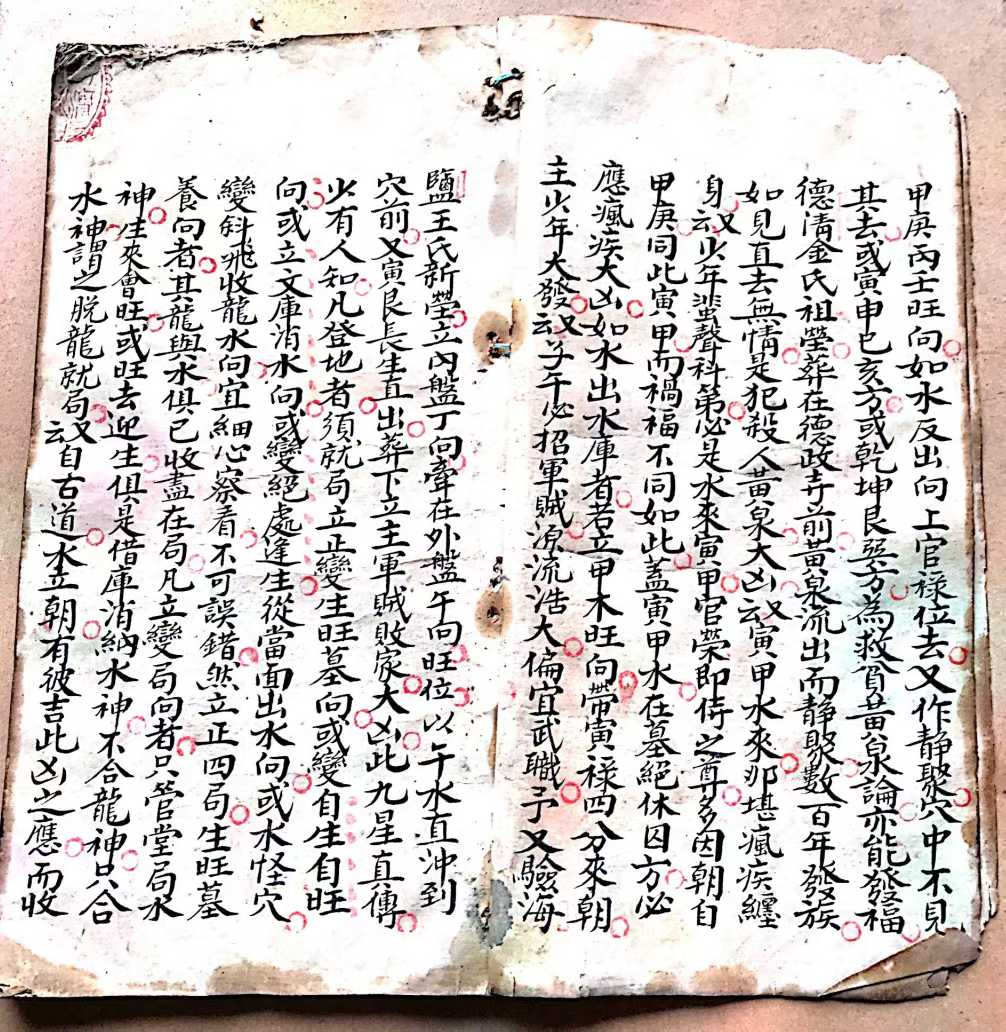 甲庚丙壬旺向如水反出向上官禄位去又作靜聚穴中不見
其去或寅申巳亥方或乾坤艮巽方為救貧黃泉論亦能發福
德清金氏祖塋葬在德政寺前黃泉流出而靜聚數百年發族
如見直去無情是犯殺人黃泉大凶又云寅甲水來那堪瘋疾纏
身又云少年蜚聲科第必是水來寅甲官榮即侍之尊多因朝自
甲庚同此寅甲而禍福不同如此蓋寅甲水在墓絕休囚方必
應瘋疾大凶如水出水庫者若立甲木旺向帶寅禄四分來朝
主少年大發又云子午必招軍賊源流浩大偏宜武職予又驗海
鹽王氏新塋立內盤丁向牽在外盤午向旺位以午水直沖到
穴前又寅艮長生直出葬下立主軍賊敗家大凶此九星直傳
少有人知凡登地者須就局立正變生旺墓向或變自生自旺
向或立文庫消水向或變絕處逢生從當面出水向或水怪穴
變斜飛收龍水向宜細心察看不可誤錯然立正四局生旺墓
養向者其龍與水俱已收盡在局凡立變局向者只管堂局水
神生來會旺或旺去迎生俱是借庫消納水神不合龍神只合
水神謂之脫龍就局又云自古道水立朝有彼吉此凶之應而收